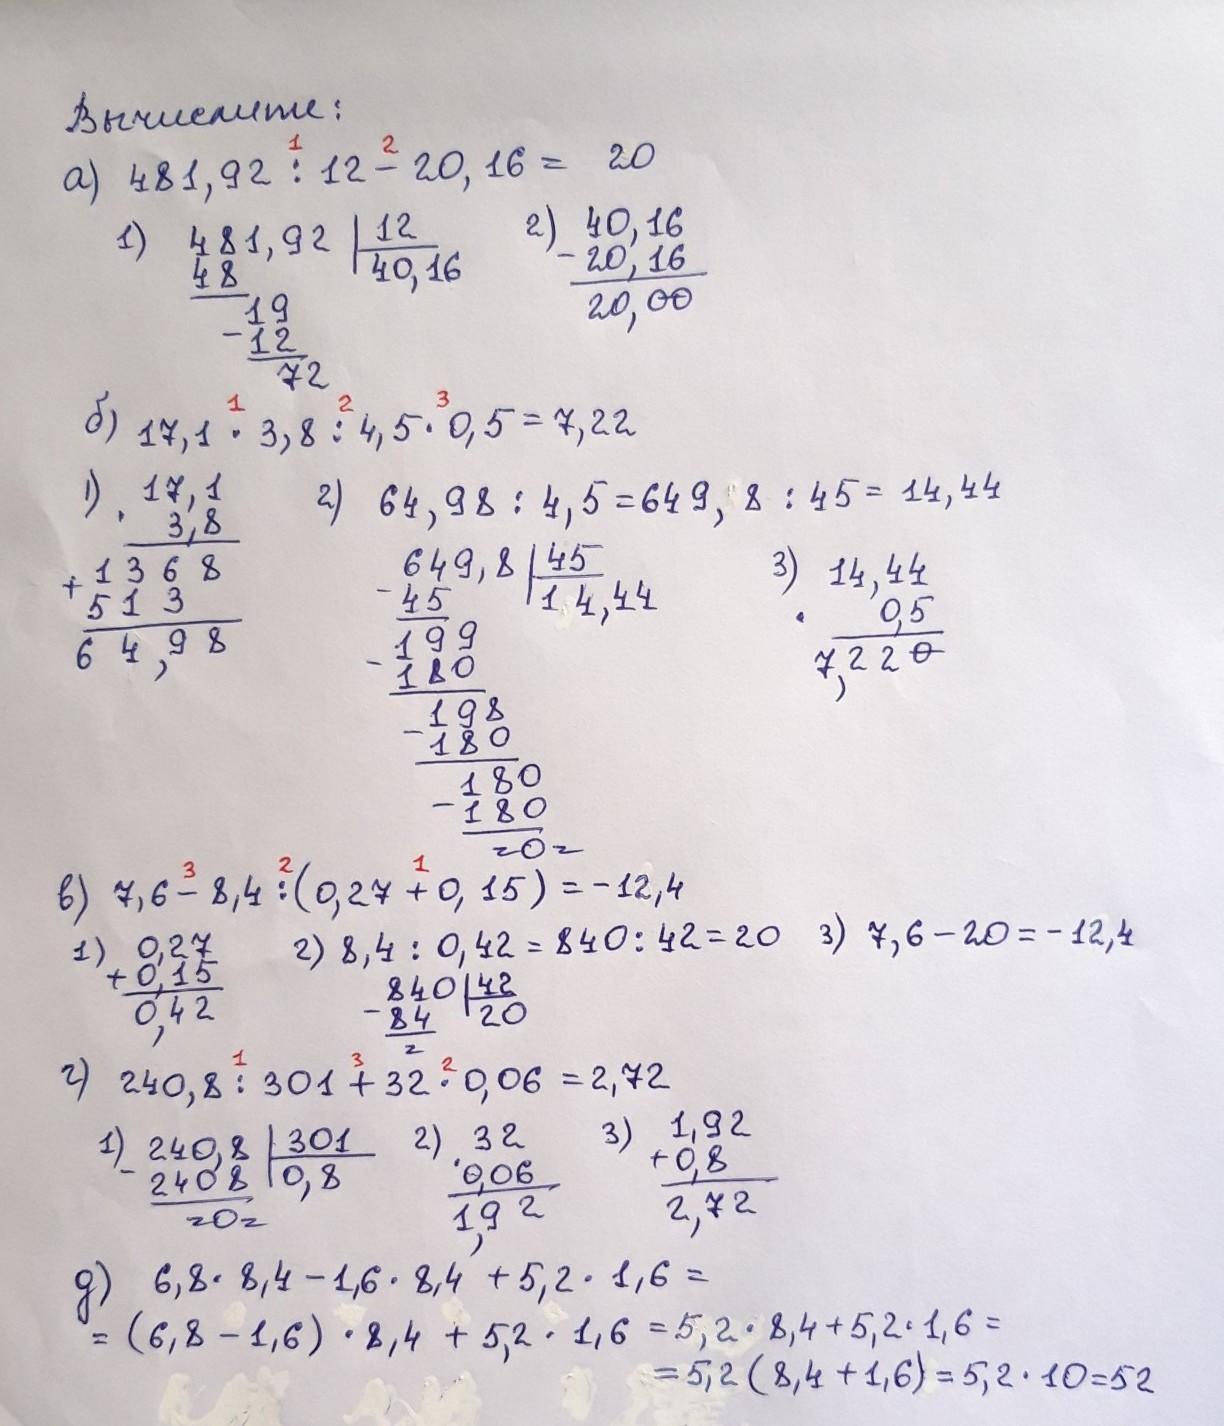 Вычислите:
1 2
а) 481,92 : 12 - 20,16 = 20
1) 481,92 | 12 2) 40,16
48 40,16 - 20,16
19 20,00
- 12
72
1 2 3
б) 17,1 · 3,8 : 4,5 · 0,5 = 7,22
1) 17,1 2) 64,98 : 4,5 = 649,8 : 45 = 14,44
· 3,8
1368 649,8 | 45 3) 14,44
+ 513 - 45 14,44 · 0,5
64,98 199 7,220
- 180
198
- 180
180
- 180
=0=
3 2 1
в) 7,6 - 8,4 : (0,27 + 0,15) = -12,4
1) 0,27 2) 8,4 : 0,42 = 840 : 42 = 20 3) 7,6 - 20 = -12,4
+ 0,15 840 | 42
0,42 - 84 20
=
1 3 2
г) 240,8 : 301 + 32 · 0,06 = 2,72
1) 240,8 | 301 2) 32 3) 1,92
- 2408 0,8 · 0,06 + 0,8
=0= 1,92 2,72
д) 6,8 · 8,4 - 1,6 · 8,4 + 5,2 · 1,6 =
= (6,8 - 1,6) · 8,4 + 5,2 · 1,6 = 5,2 · 8,4 + 5,2 · 1,6 =
= 5,2 (8,4 + 1,6) = 5,2 · 10 = 52